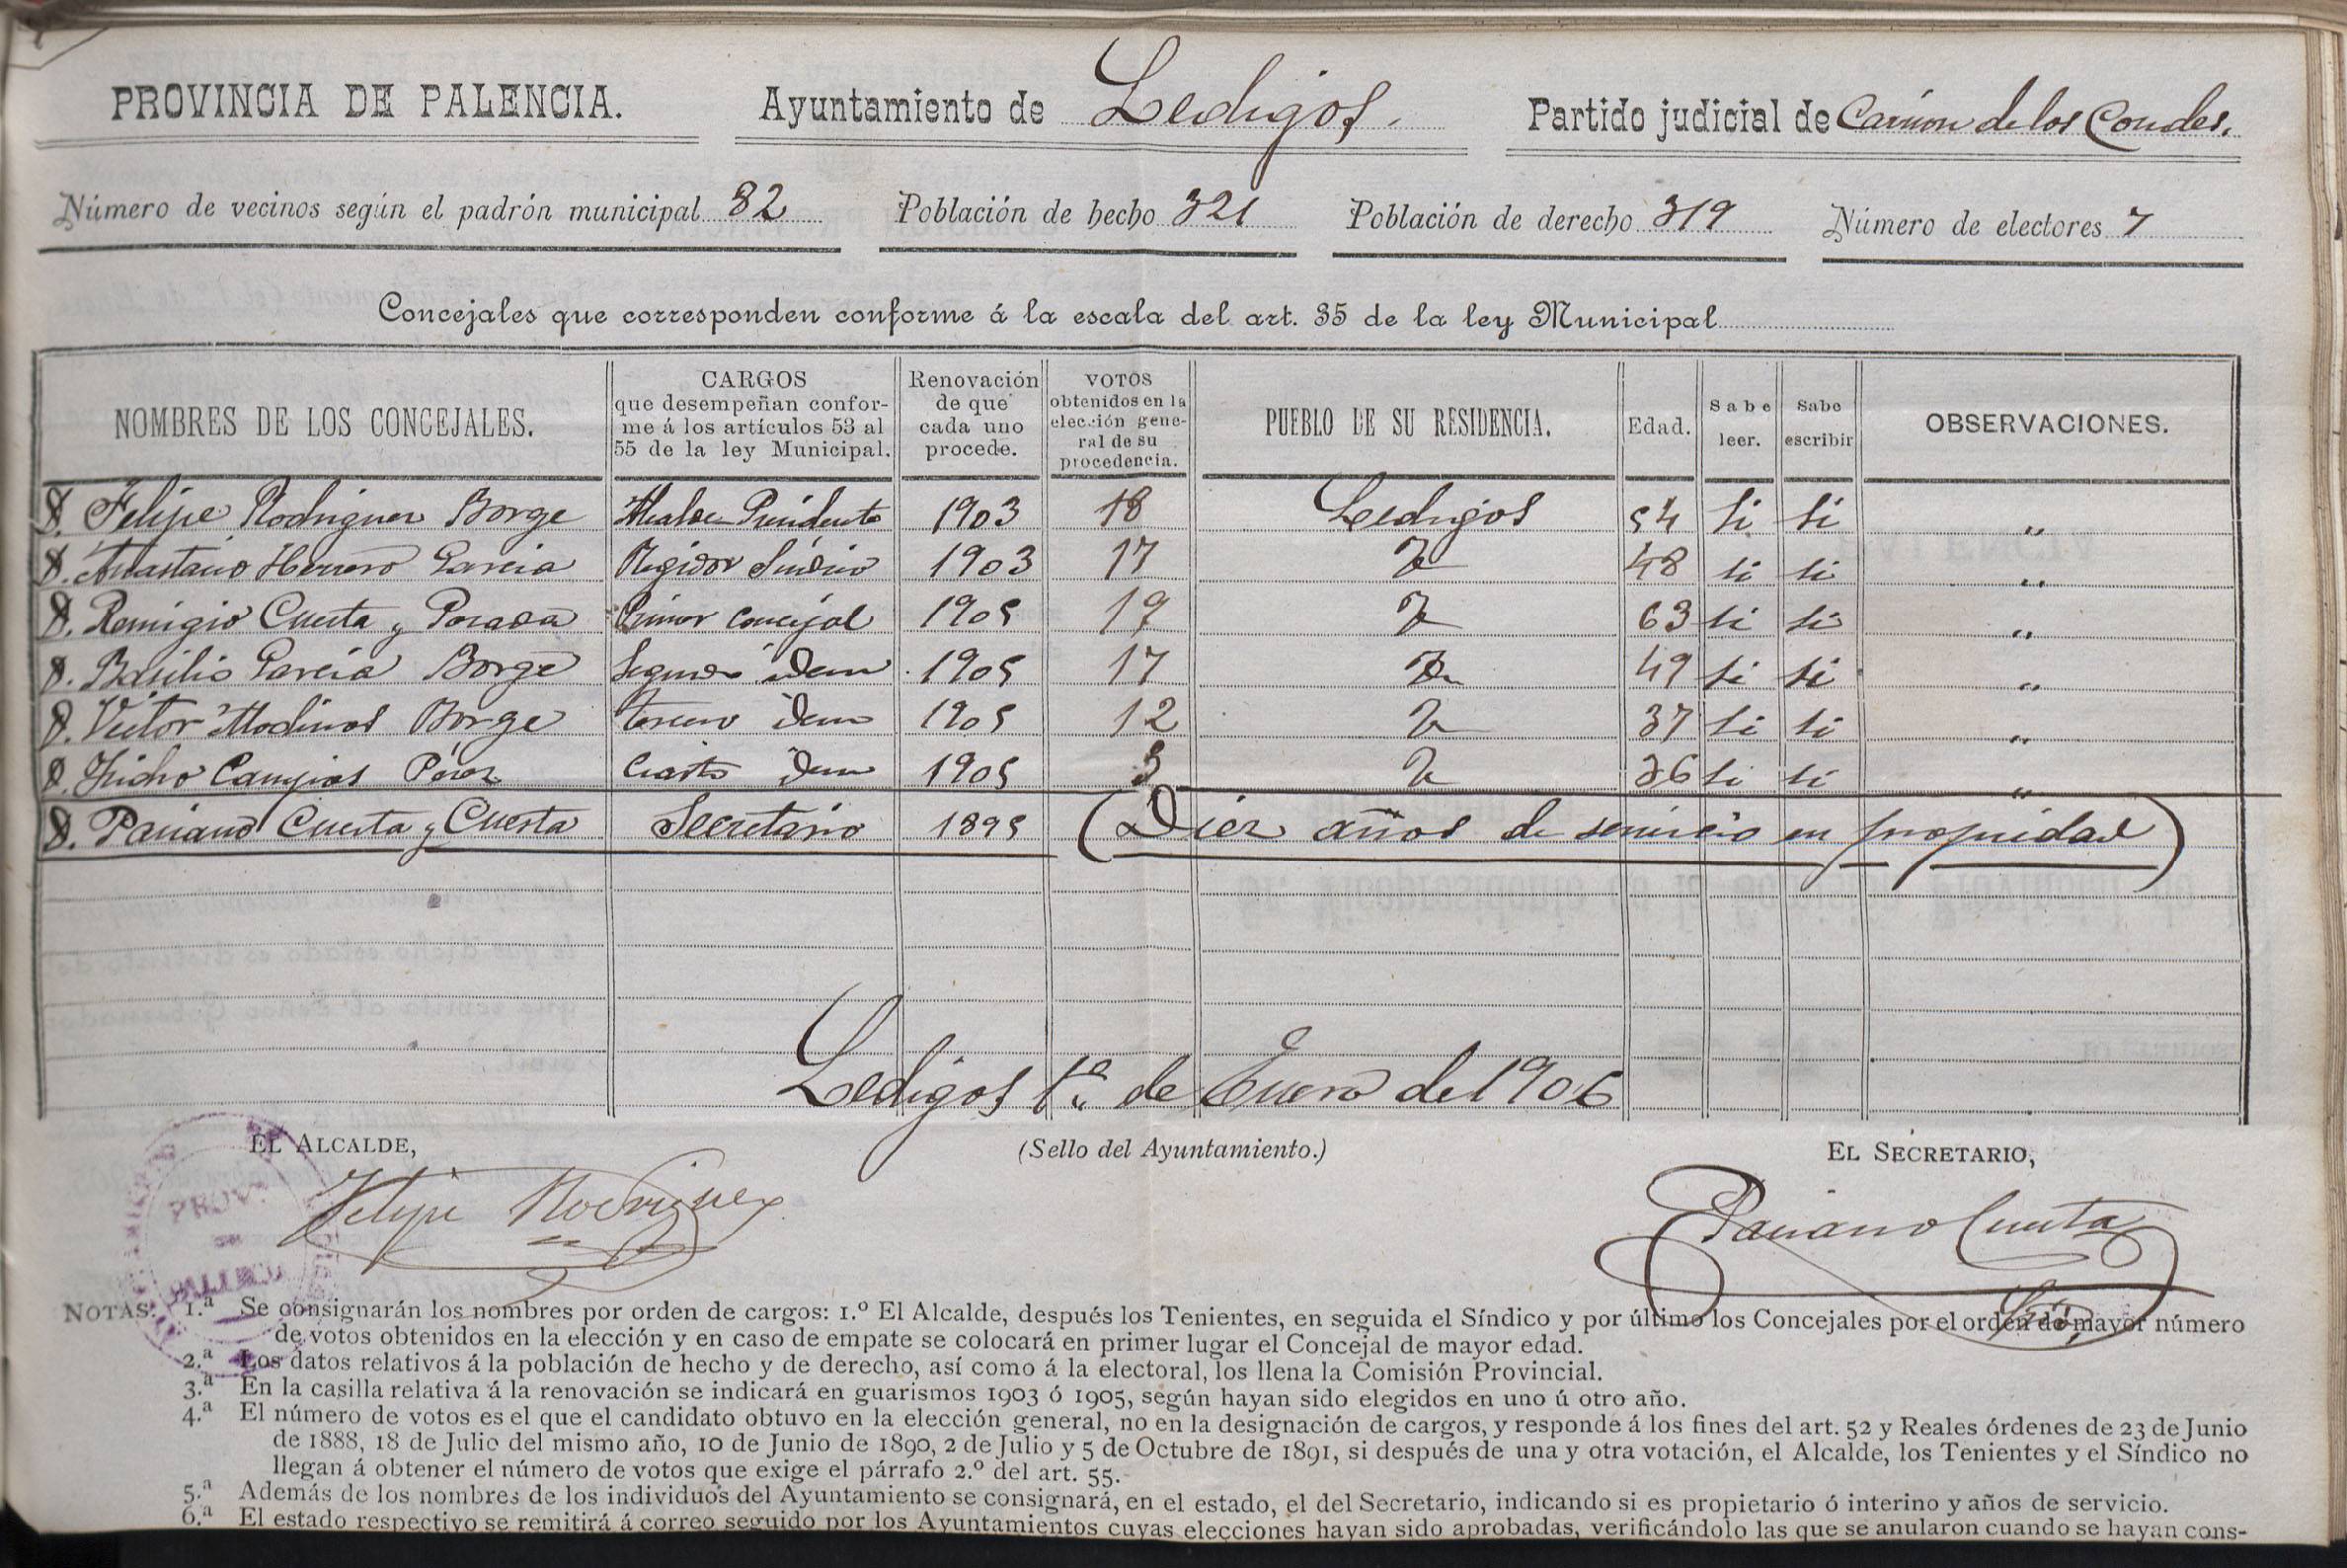 PROVINCIA DE PALENCIA. Ayuntamiento de Ledigos. Partido judicial de Carrion de los Condes.
Número de vecinos según el padrón municipal 82 Población de hecho 321 Población de derecho 319 Número de electores 7
Concejales que corresponden conforme á la escala del art. 35 de la ley Municipal
NOMBRES DE LOS CONCEJALES. CARGOS que desempeñan confor-me á los artículos 53 al 55 de la ley Municipal. Renovación de que cada uno procede. VOTOS obtenidos en la elección gene-ral de su procedencia. PUEBLO DE SU RESIDENCIA. Edad. Sabe leer. Sabe escribir OBSERVACIONES.
D. Felipe Rodriguez Borge Alcalde Presidente 1903 18 Ledigos 54 Si Si "
D. Anastasio Herrero Garcia Regidor Sindico 1903 17 48 si si "
D. Remigio Cuesta y Posada Primer concejal 1905 19 63 si si "
D. Basilio Garcia Borge Segundo idem 1905 17 49 si si "
D. Victor Modinos Borge tercero idem 1905 12 37 si si "
D. Campios Pérez Cuarto idem 1905 3 36 si si "
D. Pariano Cuesta y Cuesta Secretario 1895 (Diez años de servicio en propiedad)
Ledigos 1.º de Enero de 1906
EL ALCALDE, (Sello del Ayuntamiento.) EL SECRETARIO,
Felipe Rodriguez Pariano Cuesta
NOTAS: 1.ª Se consignarán los nombres por orden de cargos: 1.º El Alcalde, después los Tenientes, en seguida el Síndico y por último los Concejales por el orden de mayor número
de votos obtenidos en la elección y en caso de empate se colocará en primer lugar el Concejal de mayor edad.
2.ª Los datos relativos á la población de hecho y de derecho, así como á la electoral, los llena la Comisión Provincial.
3.ª En la casilla relativa á la renovación se indicará en guarismos 1903 ó 1905, según hayan sido elegidos en uno ú otro año.
4.ª El número de votos es el que el candidato obtuvo en la elección general, no en la designación de cargos, y responde á los fines del art. 52 y Reales órdenes de 23 de Junio
de 1888, 18 de Julio del mismo año, 10 de Junio de 1890, 2 de Julio y 5 de Octubre de 1891, si después de una y otra votación, el Alcalde, los Tenientes y el Síndico no
llegan á obtener el número de votos que exige el párrafo 2.º del art. 55.
5.ª Además de los nombres de los individuos del Ayuntamiento se consignará, en el estado, el del Secretario, indicando si es propietario ó interino y años de servicio.
6.ª El estado respectivo se remitirá á correo seguido por los Ayuntamientos cuyas elecciones hayan sido aprobadas, verificándolo las que se anularon cuando se hayan cons-